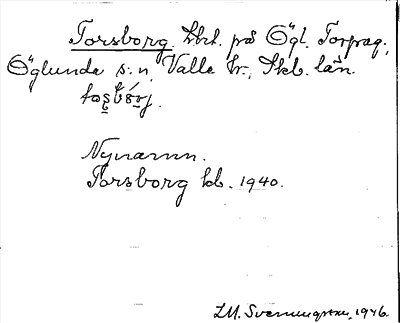 Torsborg. Lht. på Ögl. Torpag.,
Öglunda s:n, Valle hr., Skb. län.
Nynamn.
Torsborg kb. 1940.
L.M. Svenungsson, 1946.